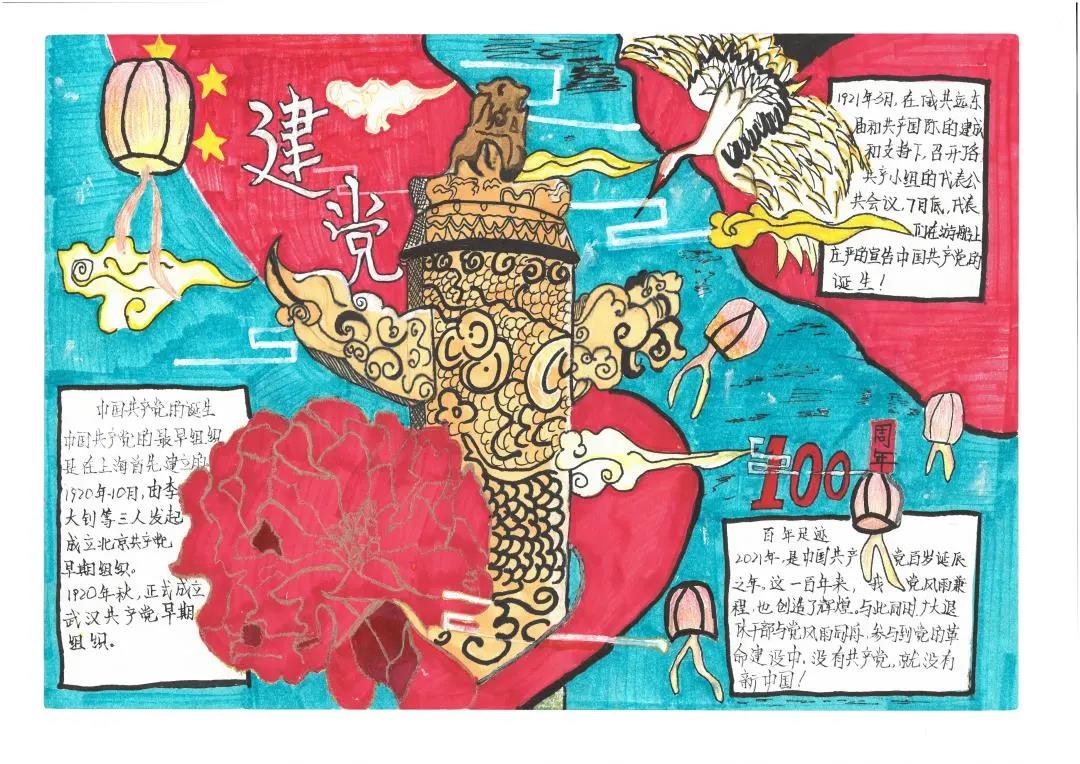 建党
1921年3月,在俄共远东
局和共产国际的建议
和支持下,召开了各
共产小组的代表公
共会议,7月底,代表
们在游船上
庄严的宣告中国共产党的
诞生!
中国共产党的诞生
中国共产党的最早组织
是在上海首先建立的
1920年10月,由李
大钊等三人发起
成立北京共产党
早期组织。
1920年秋,正式成立
武汉共产党早期
组织。
100周年
百年足迹
2021年,是中国共产党百岁诞辰
之年。这一百年来,我党风雨兼
程,也创造了辉煌。与此同时,广大退
休干部与党风雨同舟,参与到党的革
命建设中。没有共产党,就没有
新中国!